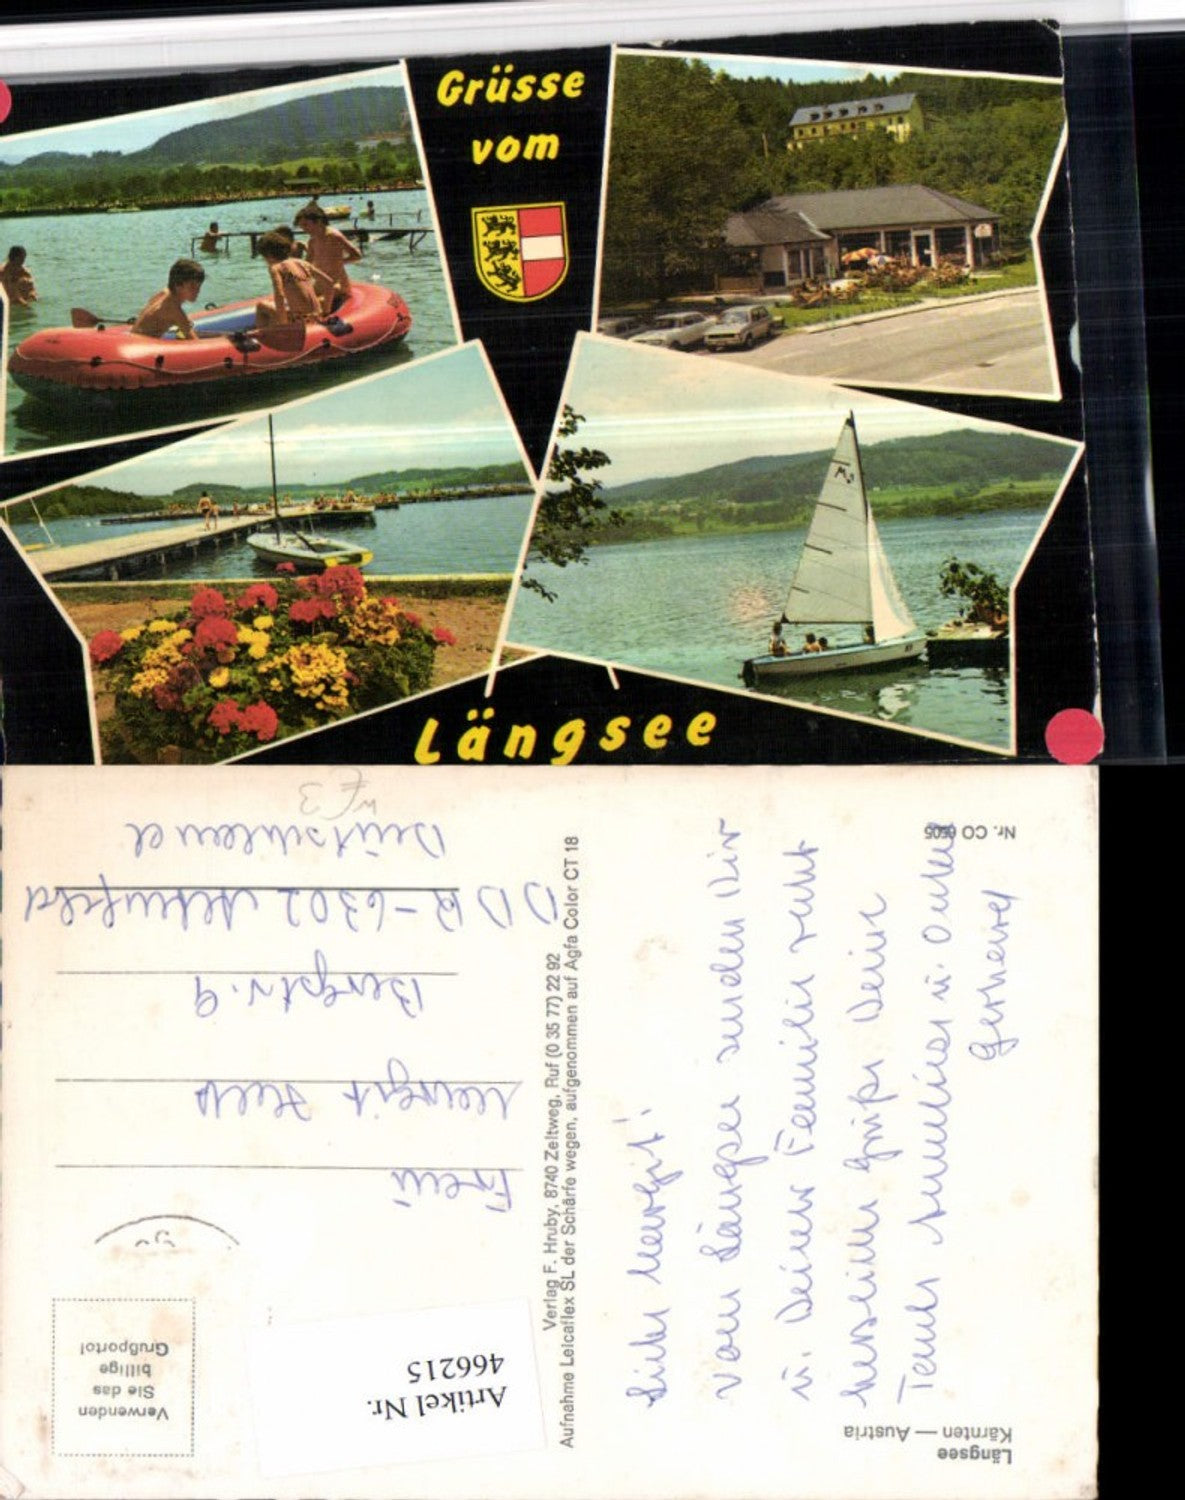 Grüsse
vom
M
Längsee
Längsee
Kärnten — Austria
Nr. CO 6505
Liebe Margit!
Vom Längsee senden Dir
u. Deiner Familie recht
herzliche Grüße Deine
Tante u. Onkel
Gerhard
Verlag F. Hruby, 8740 Zeltweg, Ruf (0 35 77) 22 92
Aufnahme Leicaflex SL der Schärfe wegen, aufgenommen auf Agfa Color CT 18
Verwenden
Sie das
billige
Grußporto!
Artikel Nr.
466215
Frau
Margit
Bergstr. 9
DDR-6302
Deutschland